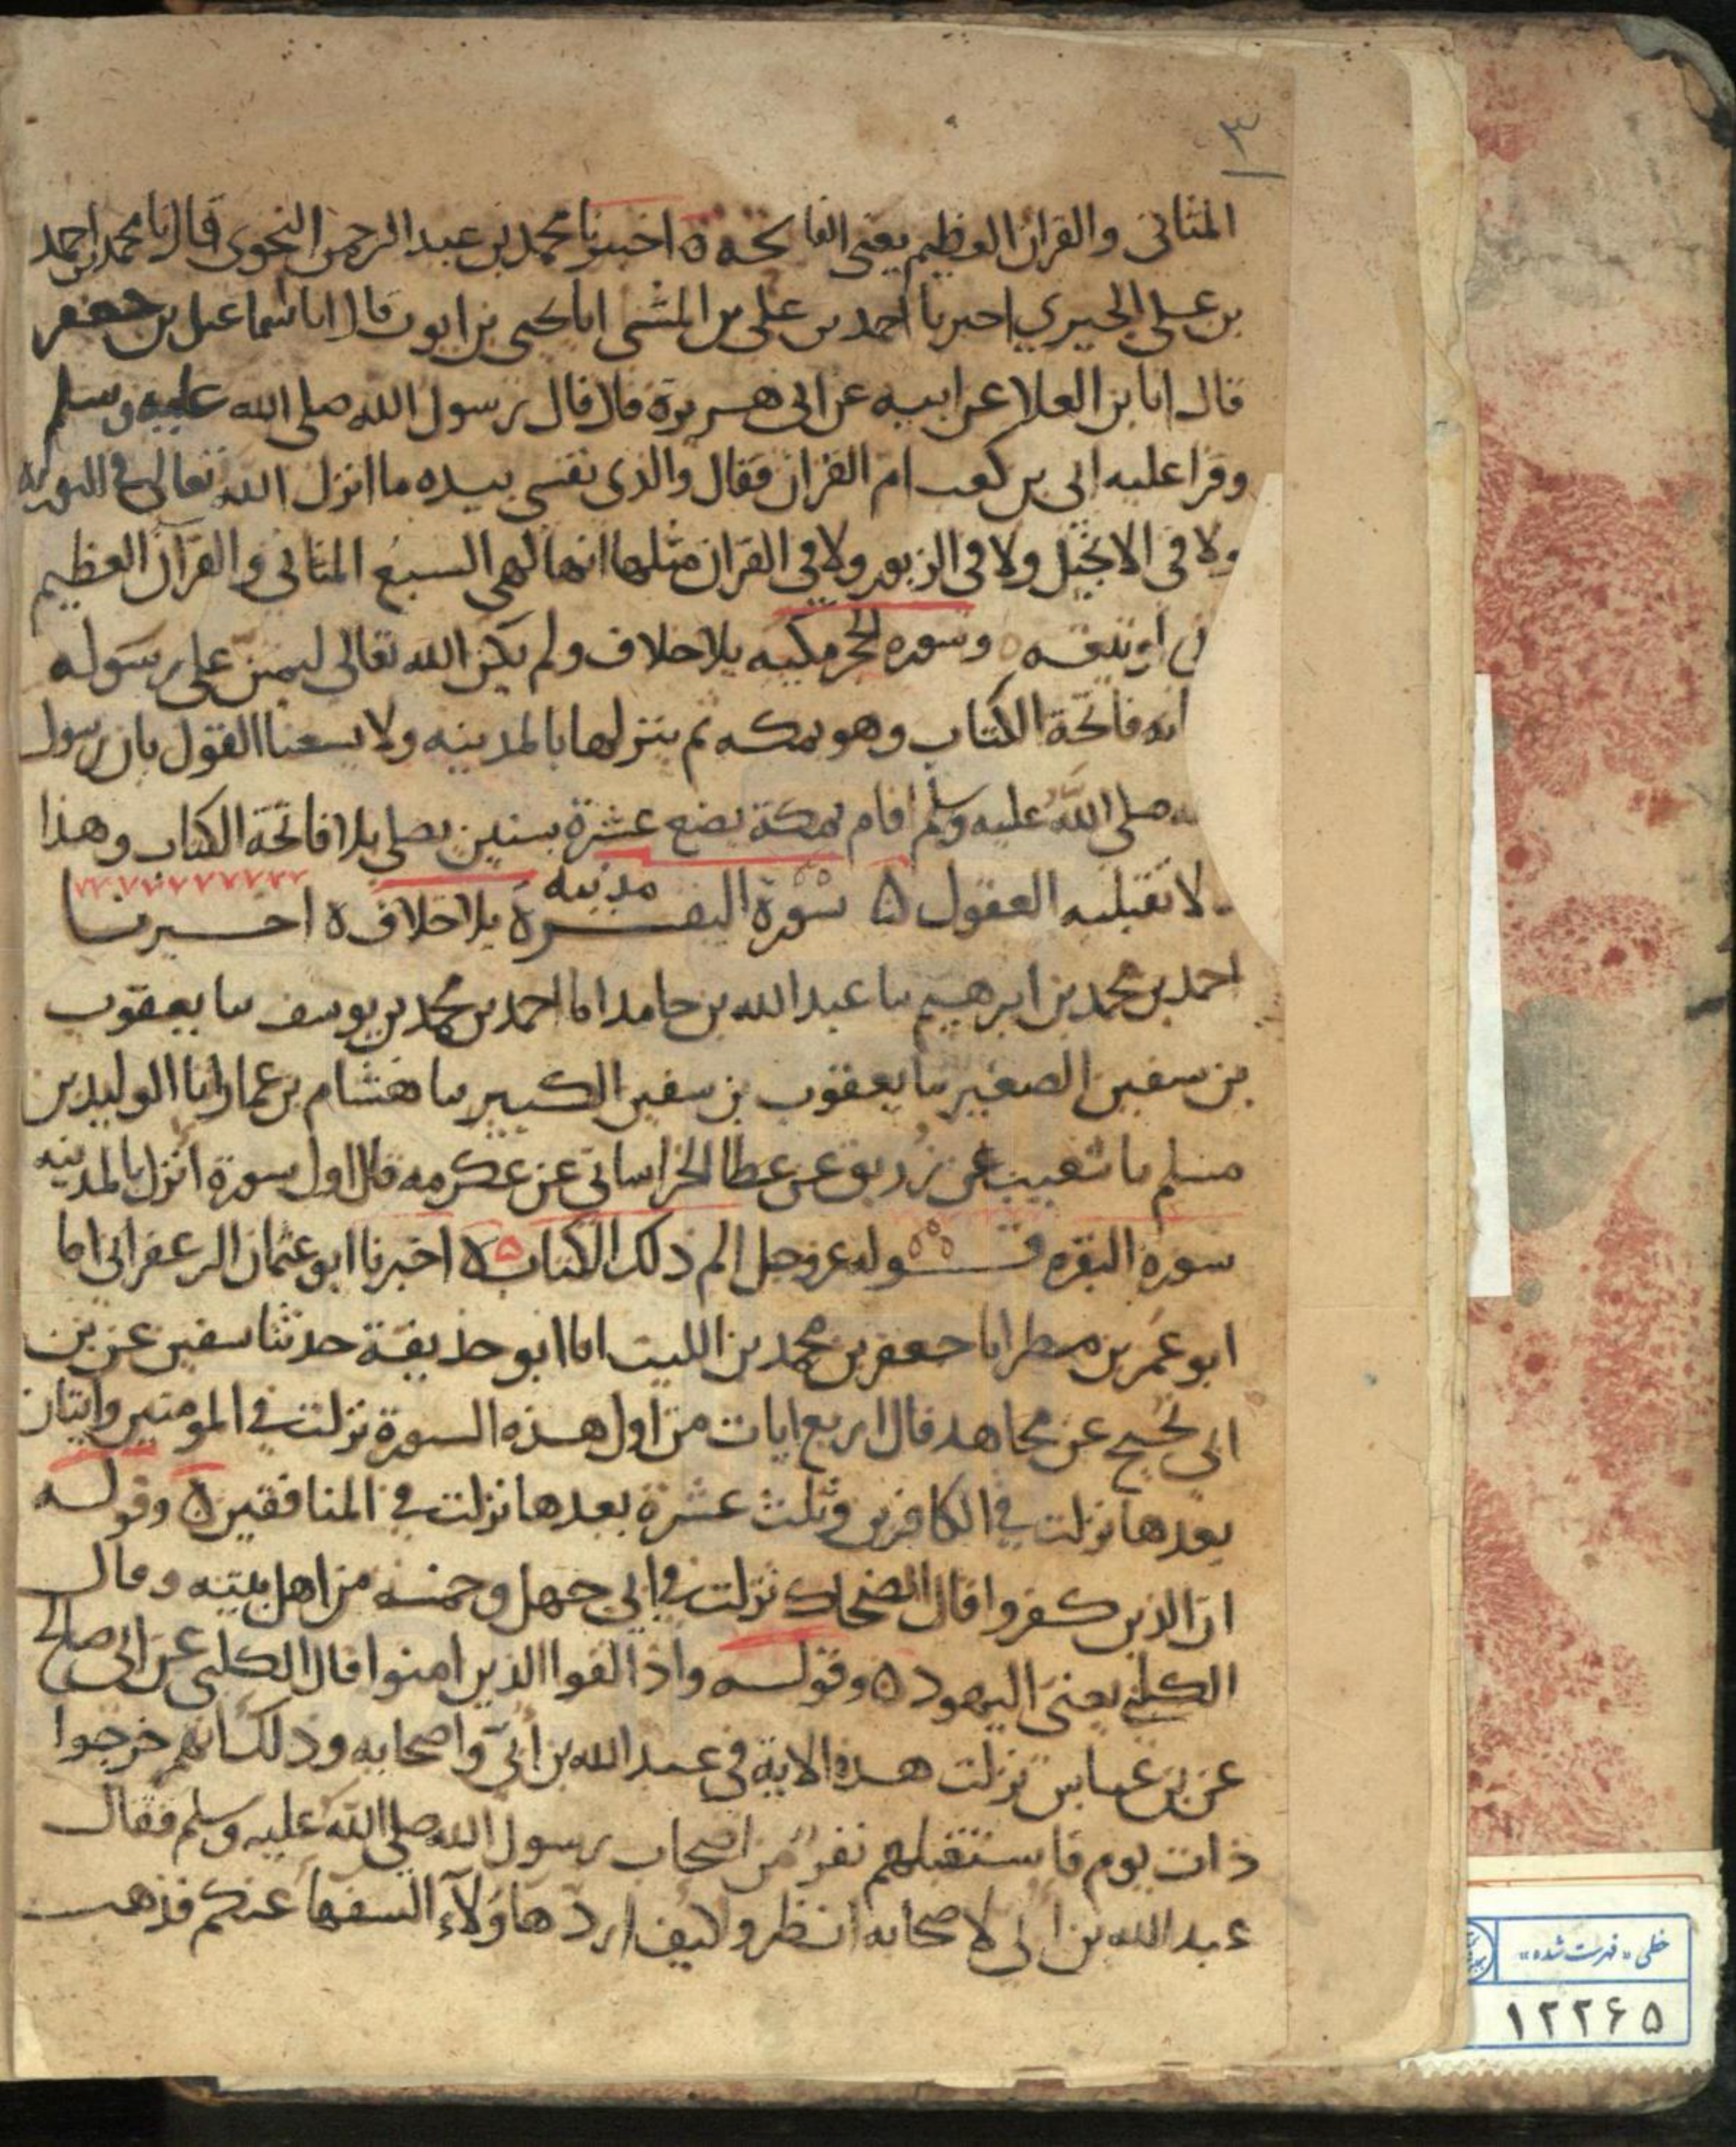 ٣
المثانى والقران العظيم يعنى الفاتحة ه اخبرنا محمد بن عبد الرحمن النحوى قال انا محمد بن احمد
بن على الحيري احبرنا احمد بن على بن المثنى انا يحيى بن ايوب قال انا اسماعيل بن جعفر
قال انا بن العلا عن ابيه عن ابى هريرة قال قال رسول الله صلى الله عليه وسلم
وقرا عليه ابى بن كعب ام القران فقال والذى نفسى بيده ما انزل الله تعالى فى التوراة
ولا فى الانجيل ولا فى الزبور ولا فى القران مثلها انها لهى السبع المثانى والقرآن العظيم
اوتيته ه وسوره الحجر مكيه بلا خلاف ولم يكن الله تعالى ليمتن على رسوله
فاتحة الكتاب وهو بمكه ثم ينزلها بالمدينه ولا يسعنا القول بان رسول
صلى الله عليه وسلم اقام بمكة بضع عشرة سنين يصلى بلا فاتحة الكتاب وهذا
لا تقبله العقول ه سورة البقرة مدنيه بلا خلاف ه اخبرنا
احمد بن محمد بن ابرهيم نا عبد الله بن حامد انا احمد بن محمد بن يوسف نا يعقوب
بن سفين الصغير نا يعقوب بن سفين الكبير نا هشام بن عمار انا الوليد بن
مسلم نا شعيب بن زريق عن عطا الخراسانى عن عكرمه قال اول سورة انزل بالمدينه
سورة البقره قوله عز وجل الم ذلك الكتاب ه اخبرنا ابو عثمان الزعفرانى انا
ابو عمر بن مطر انا جعفر بن محمد بن الليث انا ابو حذيفة حدثنا سفين عن بن
ابى نجيح عن مجاهد قال اربع ايات من اول هذه السورة نزلت فى المومنين وايتان
بعدها نزلت فى الكافرين وثلث عشرة بعدها نزلت فى المنافقين ه وقوله
ان الذين كفروا قال الضحاك نزلت فى ابى جهل وخمسه من اهل بيته وقال
الكلبى يعنى اليهود ه وقوله واذا لقوا الذين امنوا قال الكلبى عن ابى صالح
عن بن عباس نزلت هذه الاية فى عبد الله بن ابىّ واصحابه وذلك انهم خرجوا
ذات يوم فاستقبلهم نفر من اصحاب رسول الله صلى الله عليه وسلم فقال
عبد الله بن ابى لاصحابه انظروا كيف ارد هاولآء السفها عنكم فذهب
خطى «فهرست شده»
١٢٢۶۵